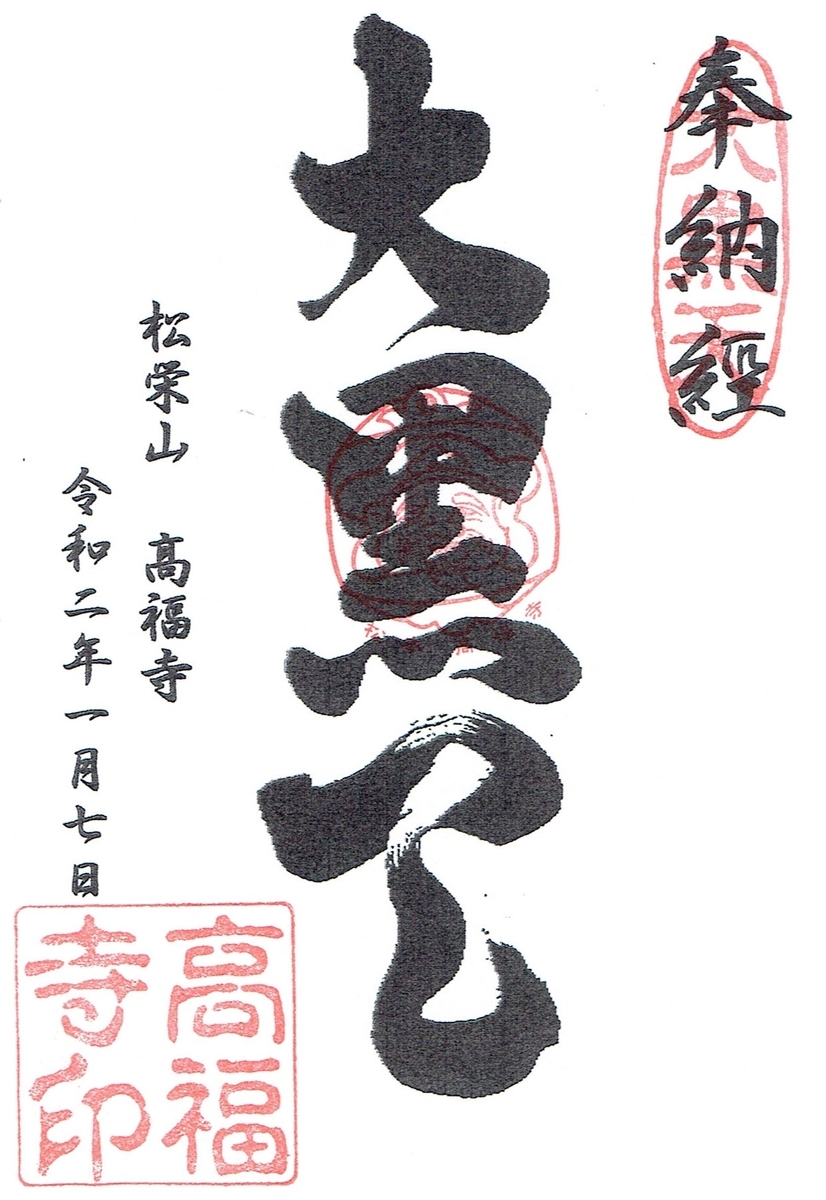 奉納經
大黒天
大黒天
松栄山 高福寺
令和二年一月七日
高福
寺印